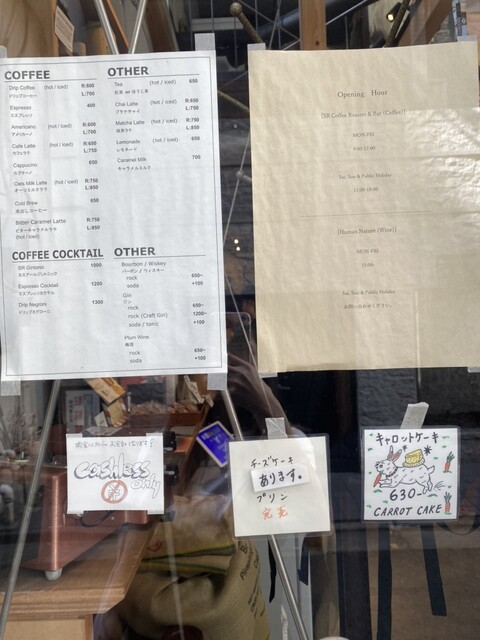 COFFEE
Drip Coffee (hot / iced) R:600
ドリップコーヒー L:700
Espresso 400
エスプレッソ
Americano (hot / iced) R:600
アメリカーノ L:700
Cafe Latte (hot / iced) R:650
カフェラテ L:750
Cappuccino 650
カプチーノ
Oats Milk Latte (hot / iced) R:750
オーツミルクラテ L:850
Cold Brew 650
水出しコーヒー
Bitter Caramel Latte R:750
ビターキャラメルラテ L:850
(hot / iced)
OTHER
Tea (hot / iced) 650
紅茶 or ほうじ茶
Chai Latte (hot / iced) R:650
プラナチャイ L:750
Matcha Latte (hot / iced) R:750
抹茶ラテ L:850
Lemonade (hot / iced) 650
レモネード
Caramel Milk 700
キャラメルミルク
COFFEE COCKTAIL
SR Gintonic 1000
エスアールジントニック
Espresso Cocktail 1200
エスプレッソカクテル
Drip Negroni 1300
ドリップネグローニ
OTHER
Bourbon / Wiskey
バーボン / ウィスキー
rock 650~
soda +100
Gin
ジン
rock 650~
rock (Craft Gin) 1200~
soda / tonic +100
Plum Wine
梅酒
rock 650~
soda +100
Opening Hour
[SR Coffee Roaster & Bar (Coffee)]
MON-FRI
Sat, Sun & Public Holiday
11:00-18:00
[Human Nature (Wine)]
MON-FRI
Sat, Sun & Public Holiday
お問い合わせください。
cashless
only
チーズケーキ
あります。
プリン
完売
キャロットケーキ
630-
CARROT CAKE